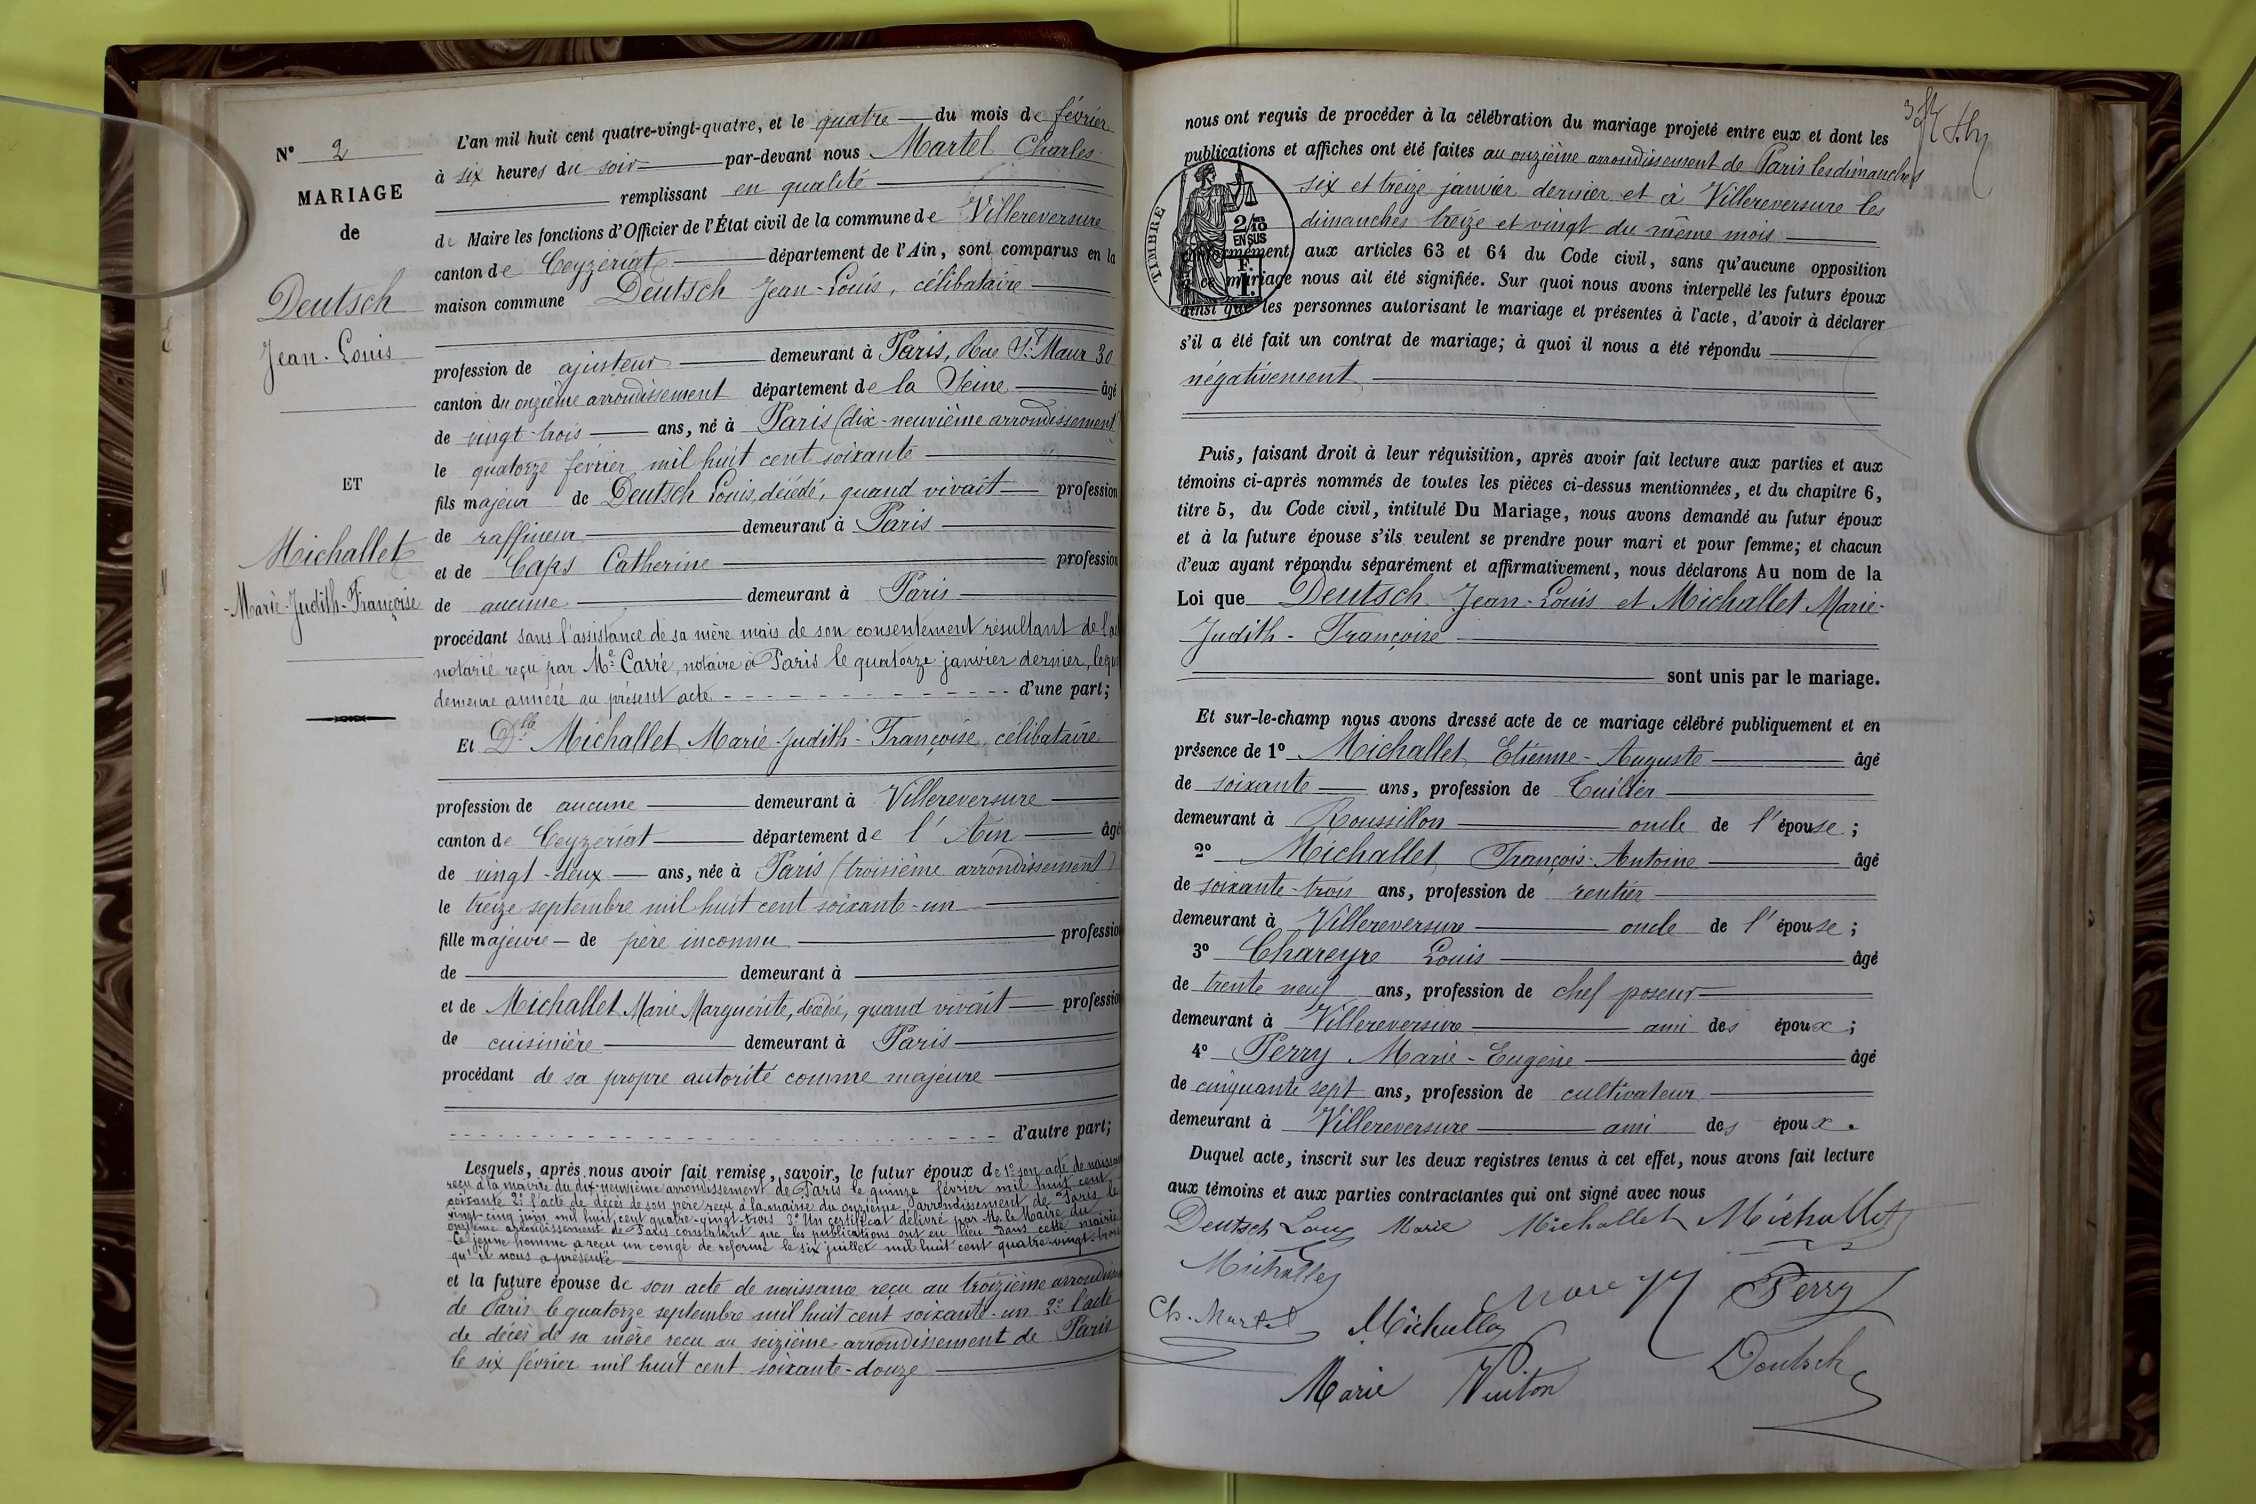 N° 2
MARIAGE
de
Deutsch
Jean-Louis
ET
Michallet
Marie-Judith-Françoise
L'an mil huit cent quatre-vingt-quatre, et le quatre du mois de février
à six heures du soir par-devant nous Martel Charles
remplissant en qualité
de Maire les fonctions d'Officier de l'État civil de la commune de Villereversure
canton de Ceyzeriat département de l'Ain, sont comparus en la
maison commune Deutsch Jean-Louis, célibataire
profession de ajusteur demeurant à Paris, Rue St. Maur 30
canton du onzième arrondissement département de la Seine âgé
de vingt-trois ans, né à Paris (dix-neuvième arrondissement
le quatorze février mil huit cent soixante
fils majeur de Deutsch Louis, décédé, quand vivait profession
de raffineur demeurant à Paris
et de Caps Catherine profession
de aucune demeurant à Paris
procédant sans l'assistance de sa mère mais de son consentement résultant de l'ac
notarié reçu par Me. Carré, notaire à Paris le quatorze janvier dernier, lequ
demeure annéxé au présent acte d'une part;
Et Dlle Michallet Marie-Judith-Françoise, célibataire
profession de aucune demeurant à Villereversure
canton de Ceyzeriat département de l'Ain âgé
de vingt-deux ans, née à Paris (troisième arrondissement)
le treize septembre mil huit cent soixante-un
fille majeure de père inconnu profession
de demeurant à
et de Michallet Marie Marguerite, décédée, quand vivait profession
de cuisinière demeurant à Paris
procédant de sa propre autorité comme majeure
d'autre part;
Lesquels, après nous avoir fait remise, savoir, le futur époux de 1° son acte de naissan
reçu à la mairie du dix-neuvième arrondissement de Paris le quinze février mil huit cent
soixante 2° l'acte de décès de son père reçu à la mairie du onzième arrondissement de Paris le
vingt-cinq juin mil huit cent quatre-vingt-trois 3° Un certificat délivré par M. le Maire du
onzième arrondissement de Paris constatant que les publications ont eu lieu dans cette mairie
Ce jeune homme a reçu un congé de réforme le six juillet mil huit cent quatre-vingt-trois
qu'il nous a présenté
et la future épouse de son acte de naissance reçu au troizième arrondiss
de Paris le quatorze septembre mil huit cent soixante-un 2° l'acte
de décès de sa mère reçu au seizième arrondissement de Paris
le six février mil huit cent soixante-douze
nous ont requis de procéder à la célébration du mariage projeté entre eux et dont les
publications et affiches ont été faites au onzième arrondissement de Paris les dimanches
six et treize janvier dernier et à Villereversure les
dimanches treize et vingt du même mois
TIMBRE
2/10
EN SUS
F.
1.
conformément aux articles 63 et 64 du Code civil, sans qu'aucune opposition
à ce mariage nous ait été signifiée. Sur quoi nous avons interpellé les futurs époux
ainsi que les personnes autorisant le mariage et présentes à l'acte, d'avoir à déclarer
s'il a été fait un contrat de mariage; à quoi il nous a été répondu
négativement
Puis, faisant droit à leur réquisition, après avoir fait lecture aux parties et aux
témoins ci-après nommés de toutes les pièces ci-dessus mentionnées, et du chapitre 6,
titre 5, du Code civil, intitulé Du Mariage, nous avons demandé au futur époux
et à la future épouse s'ils veulent se prendre pour mari et pour femme; et chacun
d'eux ayant répondu séparément et affirmativement, nous déclarons Au nom de la
Loi que Deutsch Jean-Louis et Michallet Marie-
Judith-Françoise
sont unis par le mariage.
Et sur-le-champ nous avons dressé acte de ce mariage célébré publiquement et en
présence de 1° Michallet Etienne-Auguste âgé
de soixante ans, profession de Tuilier
demeurant à Roussillon oncle de l'épouse;
2° Michallet François-Antoine âgé
de soixante-trois ans, profession de rentier
demeurant à Villereversure oncle de l'épouse;
3° Chareyre Louis âgé
de trente neuf ans, profession de chef poseur
demeurant à Villereversure ami des époux;
4° Perry Marie-Eugène âgé
de cinquante sept ans, profession de cultivateur
demeurant à Villereversure ami des époux.
Duquel acte, inscrit sur les deux registres tenus à cet effet, nous avons fait lecture
aux témoins et aux parties contractantes qui ont signé avec nous
Deutsch Louis Marie Michallet Michallet
Michallet
Perry
Ch. Martel Michallet
Deutsch
Marie Vuiton